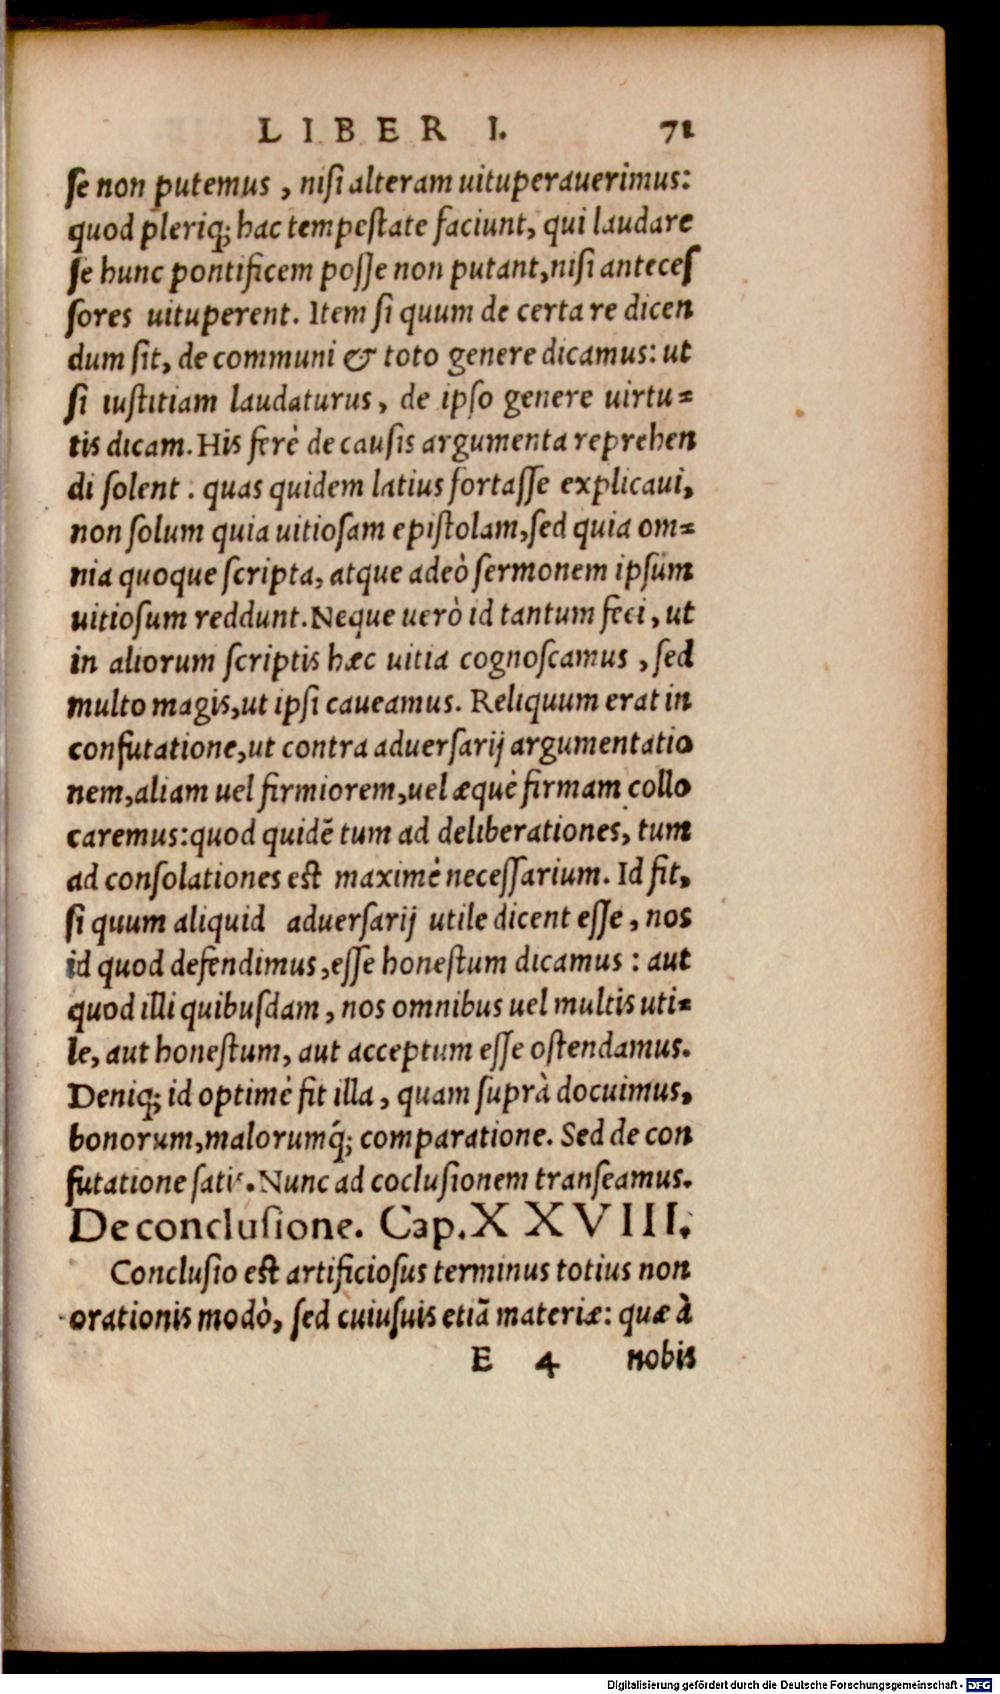 LIBER I. 71
se non putemus, nisi alteram uituperauerimus:
quod pleriq; hac tempestate faciunt, qui laudare
se hunc pontificem posse non putant, nisi anteces
sores uituperent. Item si quum de certa re dicen
dum sit, de communi & toto genere dicamus: ut
si iustitiam laudaturus, de ipso genere uirtu=
tis dicam. His ferè de causis argumenta reprehen
di solent. quas quidem latius fortasse explicaui,
non solum quia uitiosam epistolam, sed quia om=
nia quoque scripta, atque adeò sermonem ipsum
uitiosum reddunt. Neque uerò id tantum feci, ut
in aliorum scriptis hæc uitia cognoscamus, sed
multo magis, ut ipsi caueamus. Reliquum erat in
confutatione, ut contra aduersarij argumentatio
nem, aliam uel firmiorem, uel æquè firmam collo
caremus: quod quidẽ tum ad deliberationes, tum
ad consolationes est maximè necessarium. Id fit,
si quum aliquid aduersarij utile dicent esse, nos
id quod defendimus, esse honestum dicamus: aut
quod illi quibusdam, nos omnibus uel multis uti=
le, aut honestum, aut acceptum esse ostendamus.
Deniq; id optimè fit illa, quam suprà docuimus,
bonorum, malorumq́; comparatione. Sed de con
futatione satis. Nunc ad coclusionem transeamus.
De conclusione. Cap. XXVIII.
Conclusio est artificiosus terminus totius non
orationis modò, sed cuiusuis etiã materiæ: quæ à
E 4 nobis
Digitalisierung gefördert durch die Deutsche Forschungsgemeinschaft - DFG